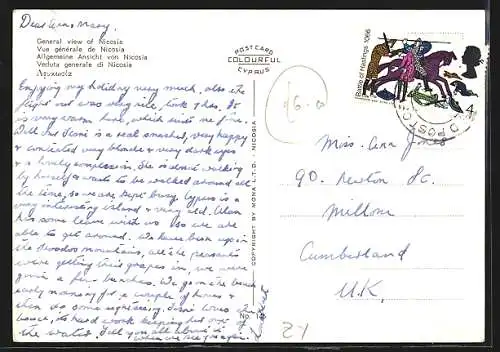 Dear Ann & Mary,
General view of Nicosia
Vue générale de Nicosia
Allgemeine Ansicht von Nicosia
Veduta generale di Nicosia
Λευκωσία
POSTCARD
COLOURFUL
CYPRUS
COPYRIGHT BY MONA L.T.D. NICOSIA
No.
Enjoying my holiday very much, also the
flight out was very nice, took 4 hrs. It
is very warm here, which suits me fine.
Well is a real smasher, very happy
& contented very blonde & very dark eyes
& a lovely complexion. She is almost walking
by herself & wants to be walked around all
the time, so we are kept busy. Cyprus is a
very interesting island & very old. Alan
has some leave with us so we are
able to get around. We have been up in
the Troodos mountains, all the peasants
were getting their grapes in, we were
given a few bunches. We go on the beach
early morning for a couple of hours &
then do some sightseeing. loves the
beach, its hard work keeping her out of
the water. Tell you all about it
when we see you
Battle of Hastings 1066
4d
POST
£6.0
Miss. Ann Jones
90. Newton St.
Millom
Cumberland
U.K.
21